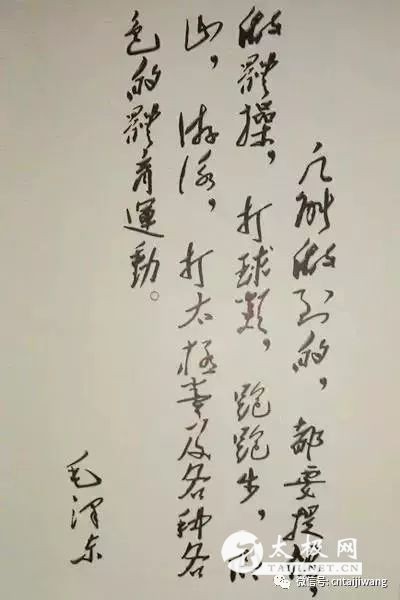 凡能做到的，都要提倡，
做體操，打球類，跑跑步，爬
山，游泳，打太极拳及各种各
色的體育運動。
毛泽东
太极网
微信号: cntaijiwang